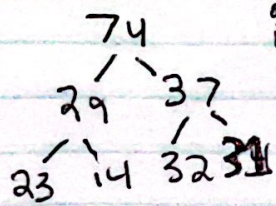 74
29 37
23 14 32